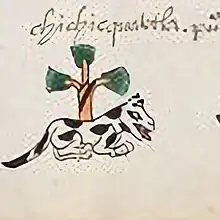 chichicquavtla. pu